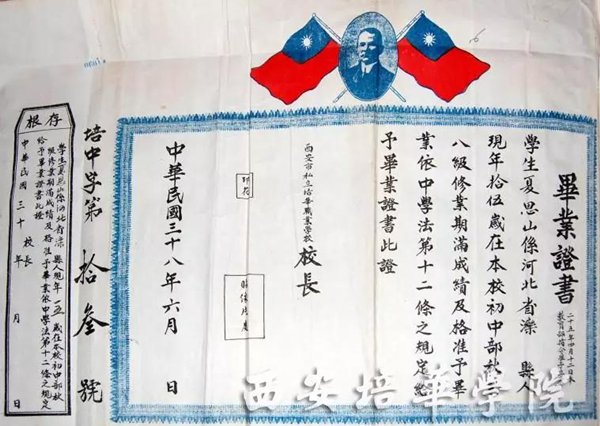 畢業證書
學生夏思山係河北省灤縣人
現年拾伍歲在本校初中部秋
八級修業期滿成績及格准予畢
業依中學法第十二條之規定給
予畢業證書此證
西安市私立培華職業學校 校長
印花
中華民國三十八年六月 日
培中字第拾叁號
存根
學生夏思山係河北省灤縣人現年一五歲在本校初中部秋
級修業期滿成績及格准予畢業依中學法第十二條之規定
給予畢業證書此證
校長
中華民國三十 年 月 日
西安培華学院